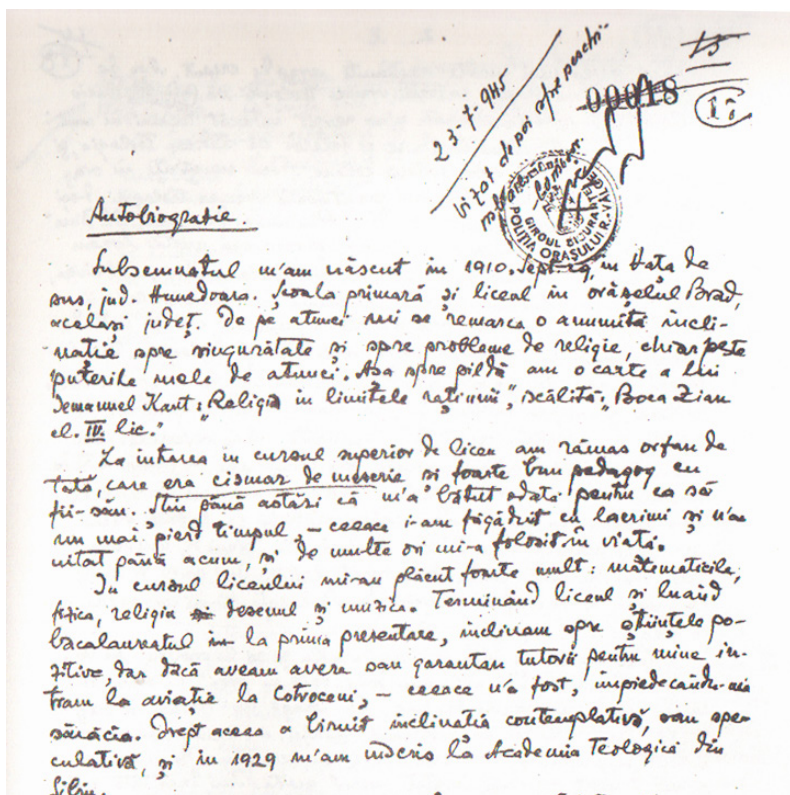 15
23-7-945
Vizat depoi sfret perchi-
00018
17
BIROUL SIGURANTEI
POLITIA ORASULUI R.-VALCEA
Autobiografie.
Subsemnatul m'am născut în 1910. Sept. 29, în Vața de
sus, jud. Hunedoara. Școala primară și liceul în orășelul Brad,
același județ. De pe atunci mi se remarca o anumită încli-
nație spre singurătate și spre probleme de religie, chiar peste
puterile mele de atunci. Așa spre pildă am o carte a lui
Iemanuel Kant: "Religia în limitele rațiunii", iscălită: "Boca Zian
el. IV. lic."
La intrarea în cursul superior de liceu am rămas orfan de
tată, care era cismar de meserie și foarte bun pedagog cu
fii-său. Știu până astăzi că m'a bătut odată pentru ca să
nu mai pierd timpul, — ceeace i-am făgăduit cu lacrimi și n'am
uitat până acum, și de multe ori mi-a folosit în viață.
În cursul liceului mi-au plăcut foarte mult: matematicile,
fizica, religia desenul și muzica. Terminând liceul și luând
bacalaureatul la prima prezentare, înclinam spre științele po-
zitive, dar dacă aveam avere sau garantau tutorii pentru mine in-
tram la aviație la Cotroceni, — ceeace n'a fost, împiedecându-mă
sărăcia. Drept aceea a biruit inclinația contemplativă, sau spe-
culativă, și în 1929 m'am înscris la Academia Teologică din
Sibiu.